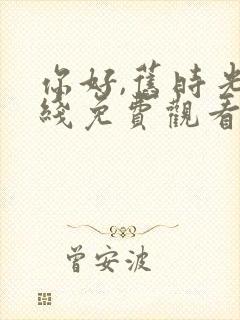 你好,舊時光
綫免費觀看
曾安波